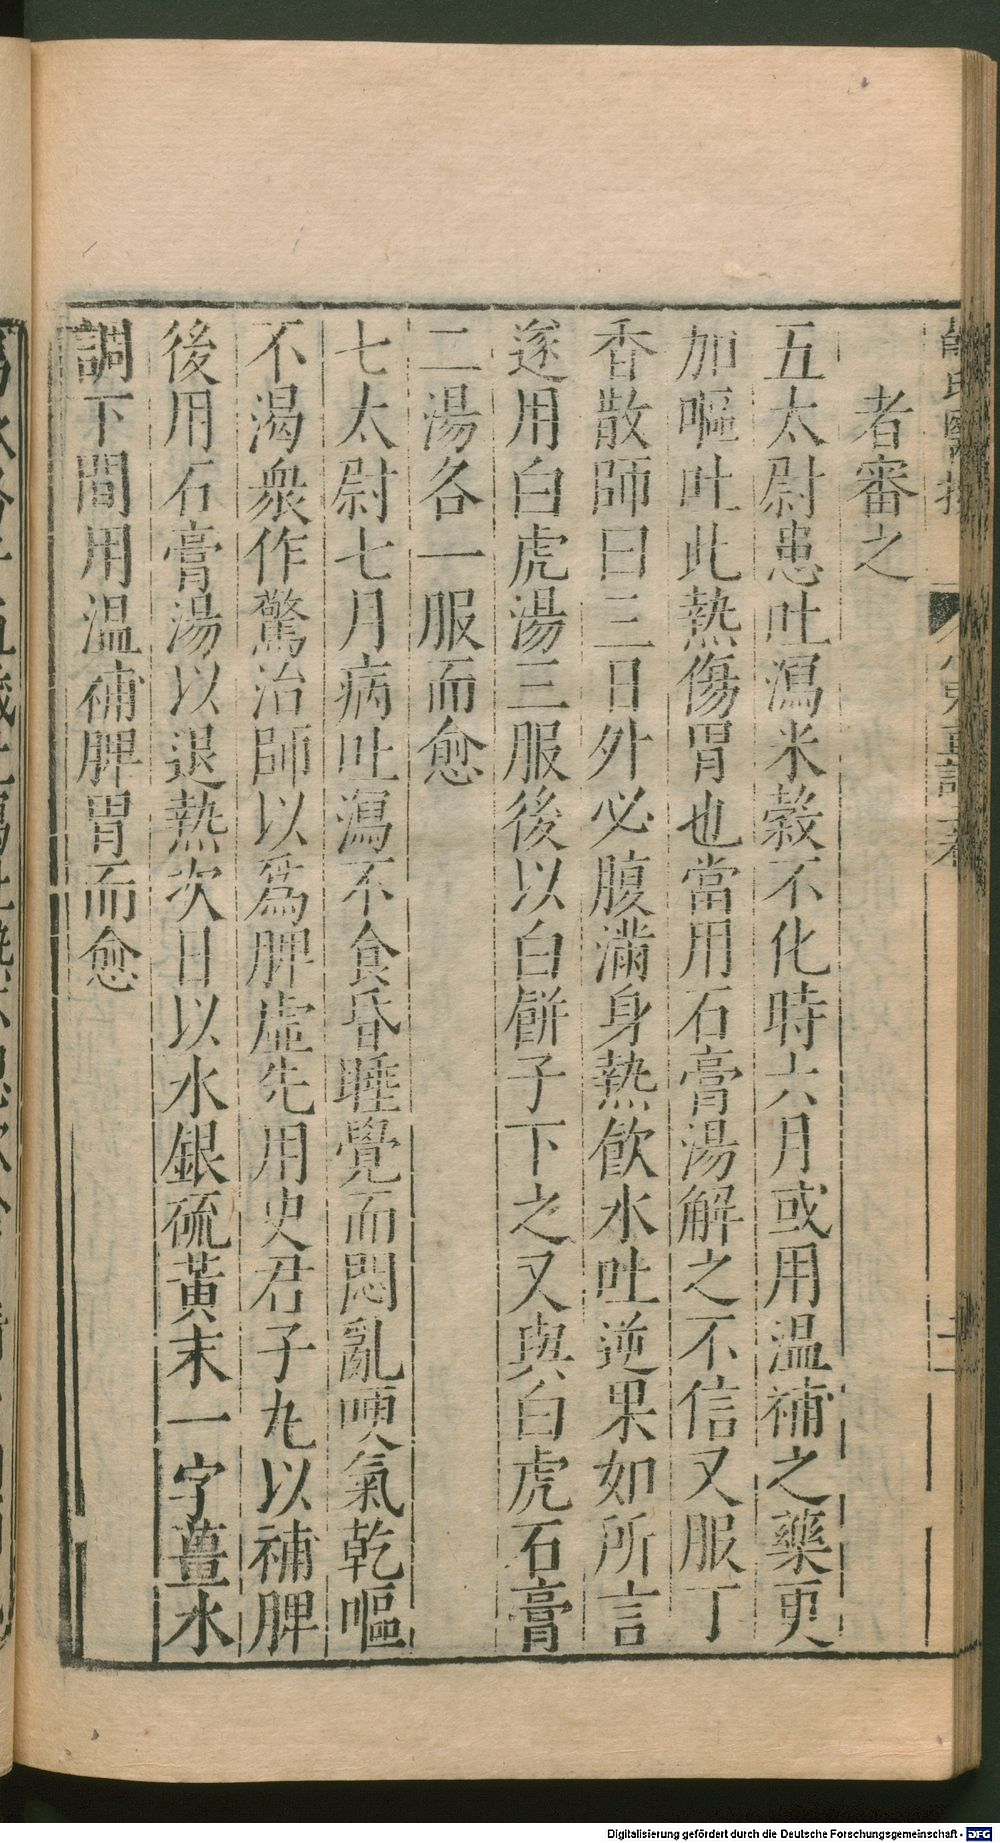 者審之
五太尉患吐瀉米穀不化時六月或用温補之藥更
加嘔吐此熱傷胃也當用石膏湯解之不信又服丁
香散師曰三日外必腹滿身熱飲水吐逆果如所言
遂用白虎湯三服後以白餅子下之又與白虎石膏
二湯各一服而愈
七太尉七月病吐瀉不食昏睡覺而悶亂哽氣乾嘔
不渴衆作驚治師以爲脾虛先用史君子丸以補脾
後用石膏湯以退熱次日以水銀硫黃末一字薑水
調下間用温補脾胃而愈
Digitalisierung gefördert durch die Deutsche Forschungsgemeinschaft - DFG